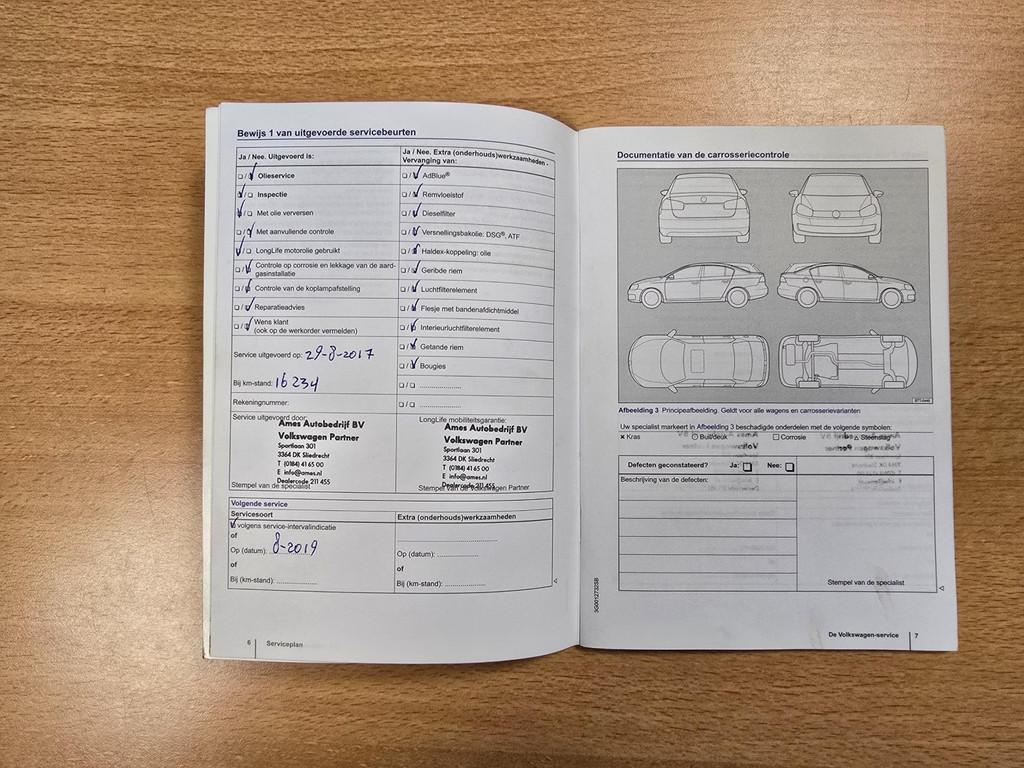 Bewijs 1 van uitgevoerde servicebeurten
Ja / Nee. Uitgevoerd is:
Olieservice
Inspectie
Met olie verversen
Met aanvullende controle
LongLife motorolie gebruikt
Controle op corrosie en lekkage van de aard-
gasinstallatie
Controle van de koplampafstelling
Reparatieadvies
Wens klant
(ook op de werkorder vermelden)
Service uitgevoerd op: 29-8-2017
Bij km-stand: 16234
Rekeningnummer:
Service uitgevoerd door:
Ames Autobedrijf BV
Volkswagen Partner
Sportlaan 301
3364 DK Sliedrecht
T (0184) 41 65 00
E info@ames.nl
Dealercode 211 455
Stempel van de specialist
Ja / Nee. Extra (onderhouds)werkzaamheden -
Vervanging van:
AdBlue®
Remvloeistof
Dieselfilter
Versnellingsbakolie: DSG®, ATF
Haldex-koppeling: olie
Geribde riem
Luchtfilterelement
Flesje met bandenafdichtmiddel
Interieurluchtfilterelement
Getande riem
Bougies
LongLife mobiliteitsgarantie:
Ames Autobedrijf BV
Volkswagen Partner
Sportlaan 301
3364 DK Sliedrecht
T (0184) 41 65 00
E info@ames.nl
Dealercode 211 455
Stempel van de Volkswagen Partner
Volgende service
Servicesoort
volgens service-intervalindicatie
of
Op (datum): 8-2019
of
Bij (km-stand):
Extra (onderhouds)werkzaamheden
Op (datum):
of
Bij (km-stand):
6 Serviceplan
Documentatie van de carrosseriecontrole
Afbeelding 3 Principeafbeelding. Geldt voor alle wagens en carrosserievarianten
Uw specialist markeert in Afbeelding 3 beschadigde onderdelen met de volgende symbolen:
× Kras ○ Buil/deuk □ Corrosie △ Steenslag
Defecten geconstateerd? Ja: Nee:
Beschrijving van de defecten:
Stempel van de specialist
3G0012732SB
De Volkswagen-service 7